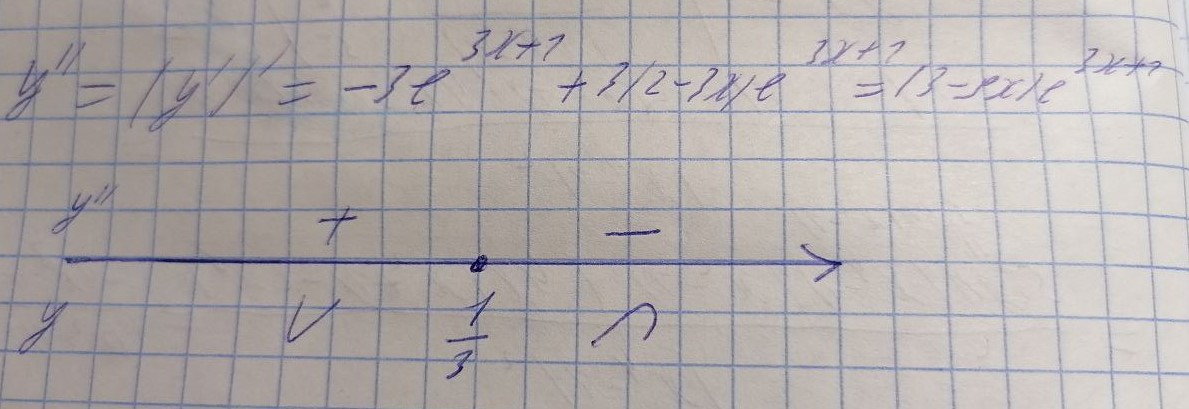 y'' = (y')' = -3e^{3x+1} + 3(2-3x)e^{3x+1} = (3-9x)e^{3x+1}
y'' + −
y ∪ 1/3 ∩